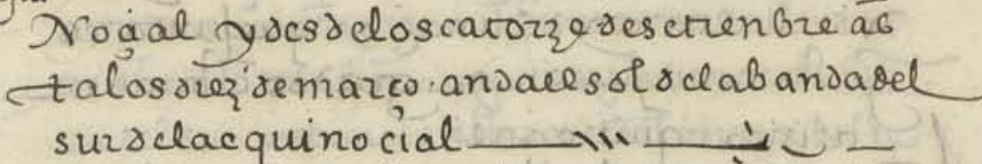 Noçial y desdelos catorze de setienbre as
ta los diez de março. anda el sol dela banda del
sur dela equinocçial